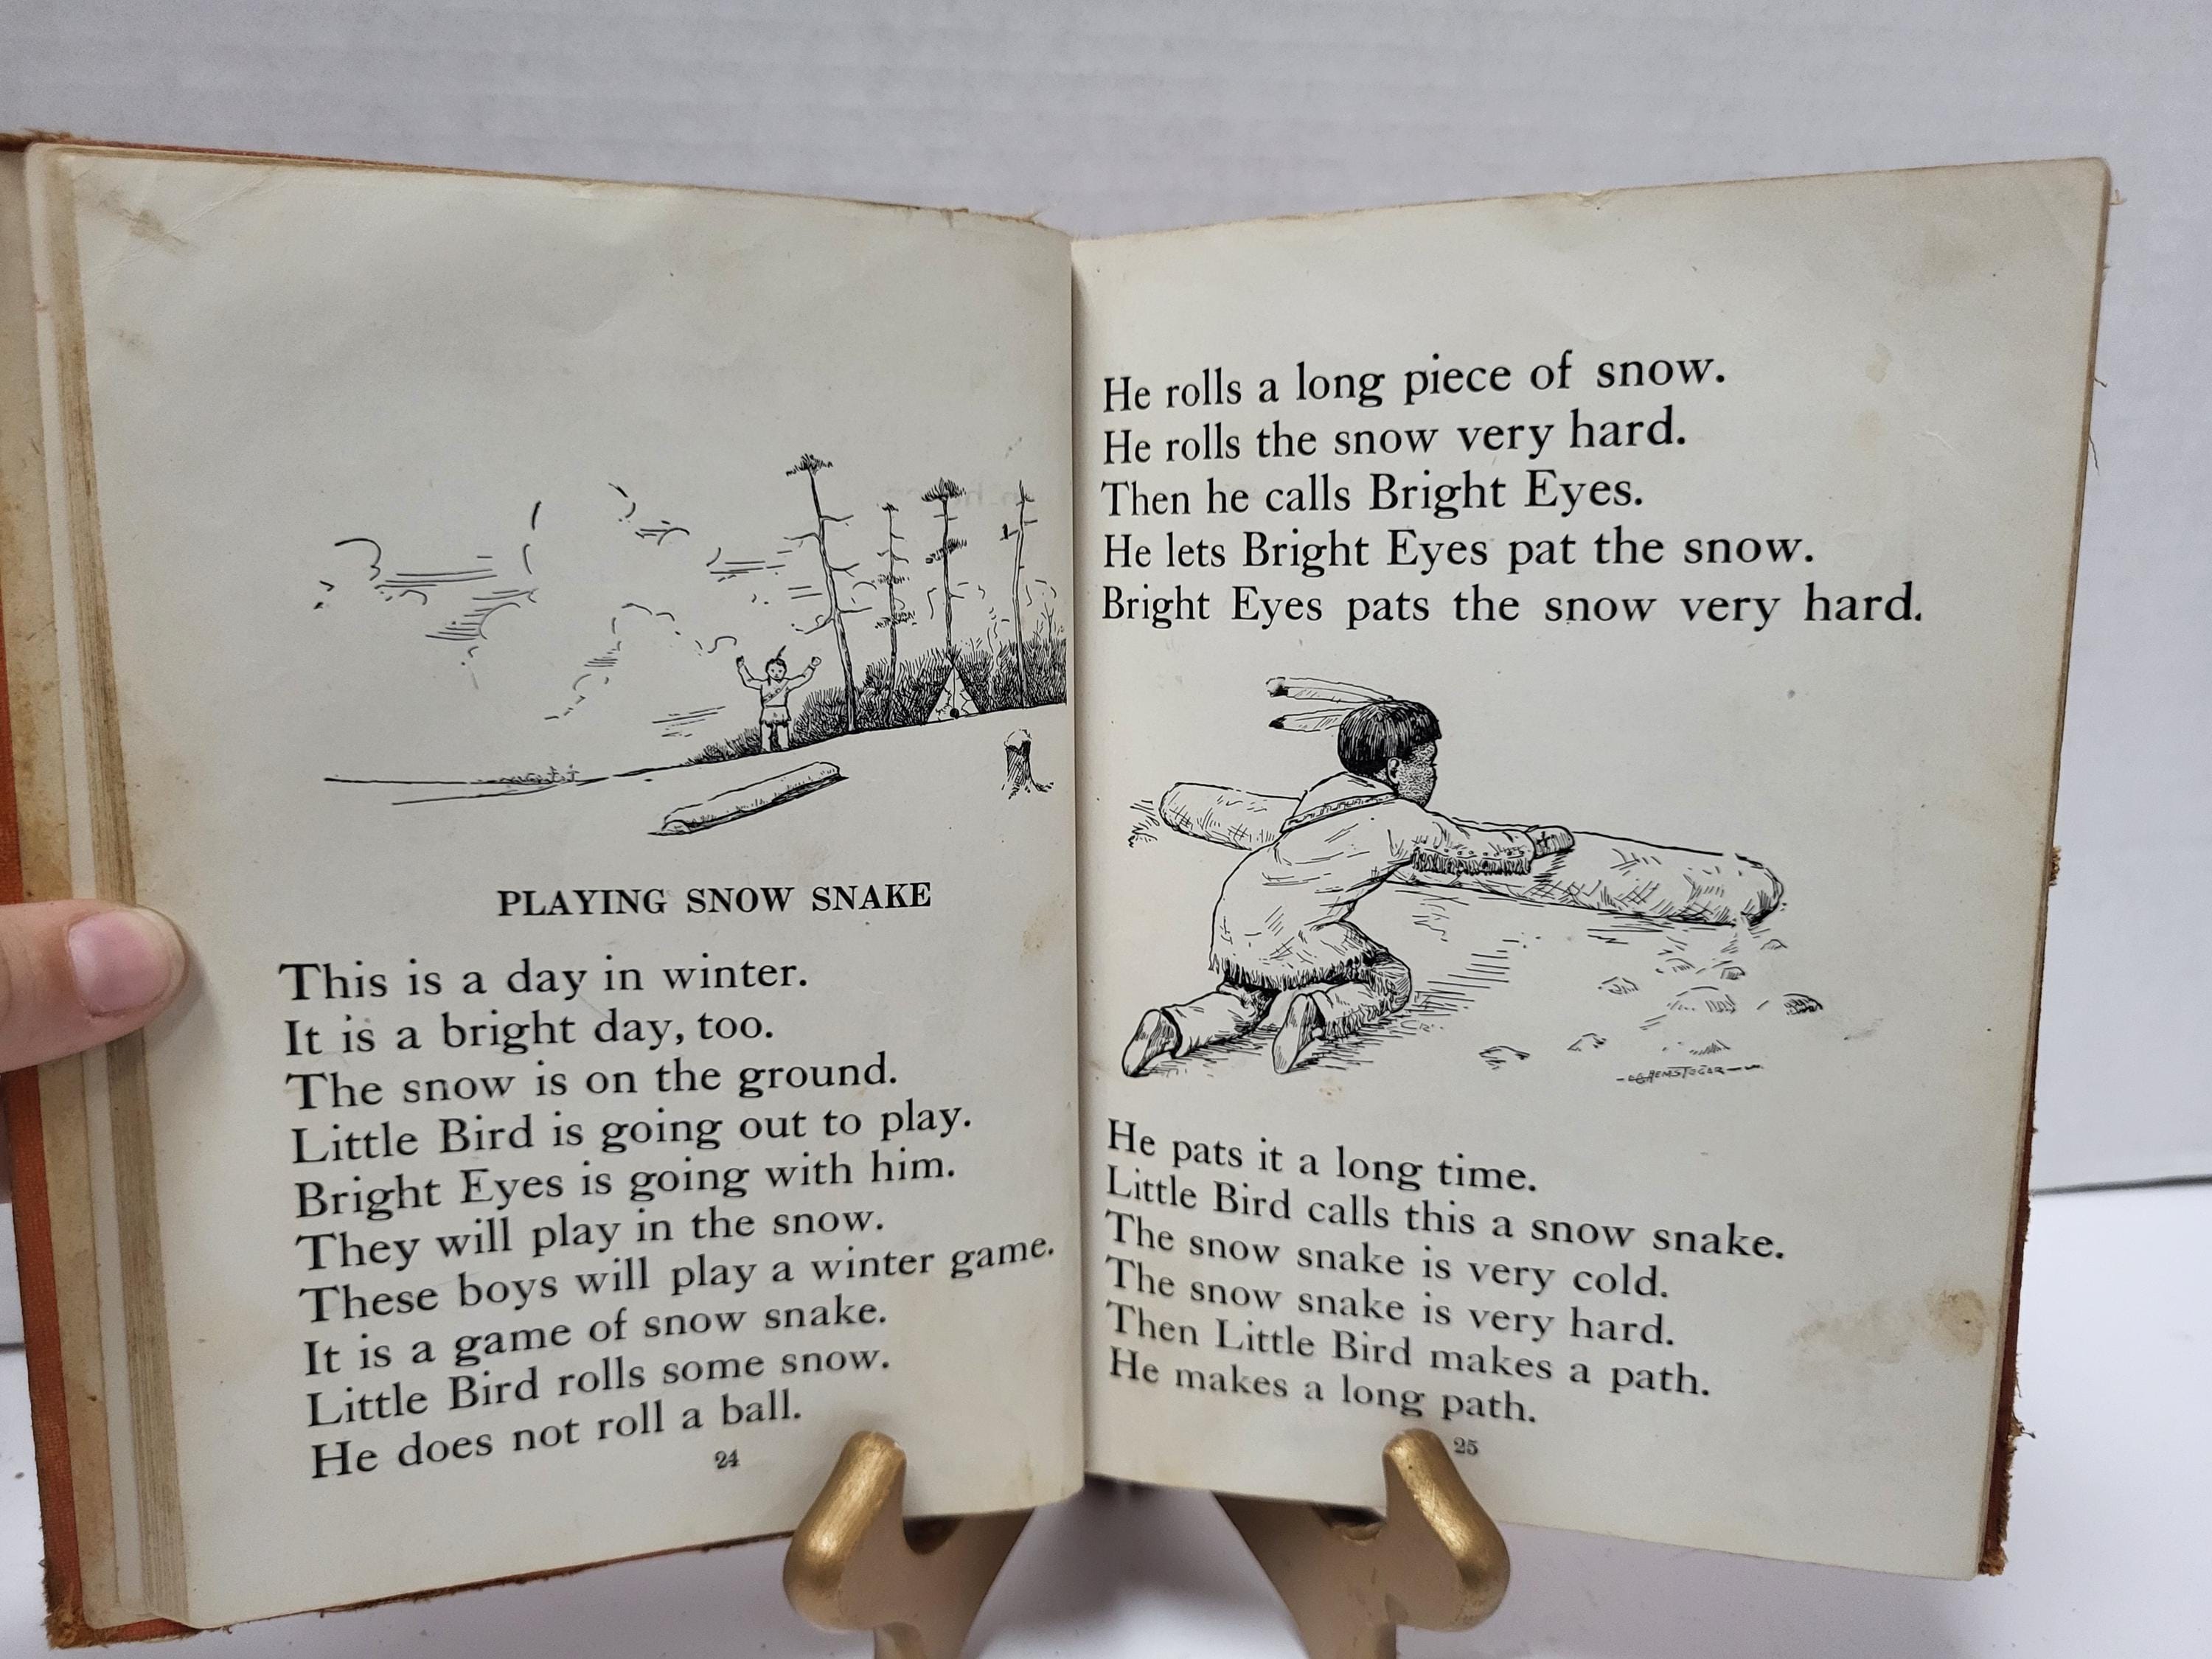 PLAYING SNOW SNAKE
This is a day in winter.
It is a bright day, too.
The snow is on the ground.
Little Bird is going out to play.
Bright Eyes is going with him.
They will play in the snow.
These boys will play a winter game.
It is a game of snow snake.
Little Bird rolls some snow.
He does not roll a ball.
24
He rolls a long piece of snow.
He rolls the snow very hard.
Then he calls Bright Eyes.
He lets Bright Eyes pat the snow.
Bright Eyes pats the snow very hard.
He pats it a long time.
Little Bird calls this a snow snake.
The snow snake is very cold.
The snow snake is very hard.
Then Little Bird makes a path.
He makes a long path.
25